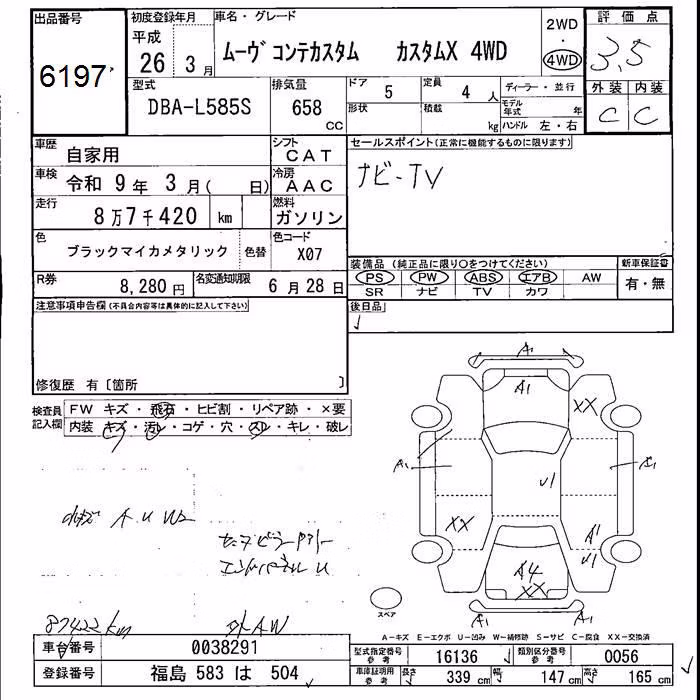 出品番号 初度登録年月 車名・グレード 2WD 評価点
6197 平成 26年 3月 ムーヴ コンテカスタム カスタムX 4WD 4WD 3.5
型式 排気量 ドア 5 定員 4人 ディーラー・並行 外装 内装
DBA-L585S 658 cc 形状 積載 kg モデル年式 年 C C
ハンドル 左・右
車歴 自家用 シフト CAT セールスポイント(正常に機能するものに限ります)
車検 令和 9年 3月( 日) 冷房 AAC ナビ-TV
走行 8万7千420 km 燃料 ガソリン
色 ブラックマイカメタリック 色替 色コード X07
装備品 (純正品に限り○をつけてください) 新車保証書
R券 8,280円 名変通知期限 6月28日 PS PW ABS エアB AW 有・無
SR ナビ TV カワ
注意事項申告欄(不具合内容等は具体的に記入して下さい) 後日品
修復歴 有 〔箇所 〕
検査員記入欄 FW キズ・飛石・ヒビ割・リペア跡・×要
内装 キズ・汚レ・コゲ・穴・スレ・キレ・破レ
A1 A1 XX
A1 U1 A1
XX A1 U1
A4 XX
A1 A1
A U W2
87422km
スペア
A-キズ E-エクボ U-凹み W-補修跡 S-サビ C-腐食 XX-交換済
車台番号 0038291 型式指定番号 参考 16136 類別区分番号 参考 0056
登録番号 福島 583 は 504 車庫証明用 参考 長さ 339cm 幅 147cm 高さ 165cm